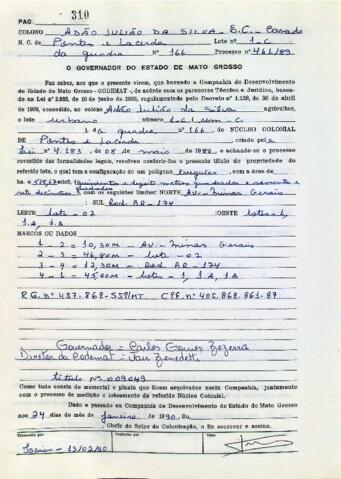 PAG. 310
COLONO ADÃO JULIÃO DA SILVA - S.C. - Casado
N. C. de Pontes e Lacerda Lote nº 1-c
da quadra nº 166 Processo nº 461/89
O GOVERNADOR DO ESTADO DE MATO GROSSO
Faz saber, aos que o presente virem, que havendo a Companhia de Desenvolvimento
do Estado de Mato Grosso - CODEMAT -, de acôrdo com os pareceres Técnico e Jurídico, basea-
do na Lei nº de 10 de junho de regulamentada pelo Decreto nº 1.138, de 30 de abril
de 1970, concedido, ao colono Adão Julião da Silva agricultor,
o lote urbano número 1-C (um-c
) da quadra nº 166, do NÚCLEO COLONIAL
DE Pontes e Lacerda criado pela
Lei nº 4.183 de 08 de maio de 1980, e achando-se o processo
revestido das formalidades legais, resolveu conferir-lhe o presente título de propriedade do
referido lote, o qual tem a configuração de um polígono irregular, com a área de
518,67 (quinhentos e dezoito metros quadrados e sessenta e
sete decímetros quadrados), com os seguintes limites: NORTE Av. Minas Gerais
SUL Rod. BR-174
LESTE lote-02 OESTE lotes-1,
1.A, 1.A
MARCOS OU DADOS
1 - 2 = 10,30M - Av. Minas Gerais
2 - 3 = 46,80m - lote-02
3 - 4 = 12,30m - Rod. BR-174
4 - 1 = 45,00m - lotes-1, 1A, 1A
R.G. nº 437.868-SSP/MT. CPF. nº 405.868.861-87
Governador = Carlos Gomes Bezerra
Diretor da Codemat = Jair Benedetti
título Nº 009049
Como tudo consta do memorial e planta que ficam arquivados nesta Companhia, juntamente
com o processo de medição e loteamento do referido Núcleo Colonial.
Dado e passado na Companhia de Desenvolvimento do Estado de Mato Grosso
aos 24 dias do mês de janeiro de 1990. Eu
Chefe do Setor de Colonização, o fiz escrever e assino.
Transcrito por Conferido por Visto
13/02/90